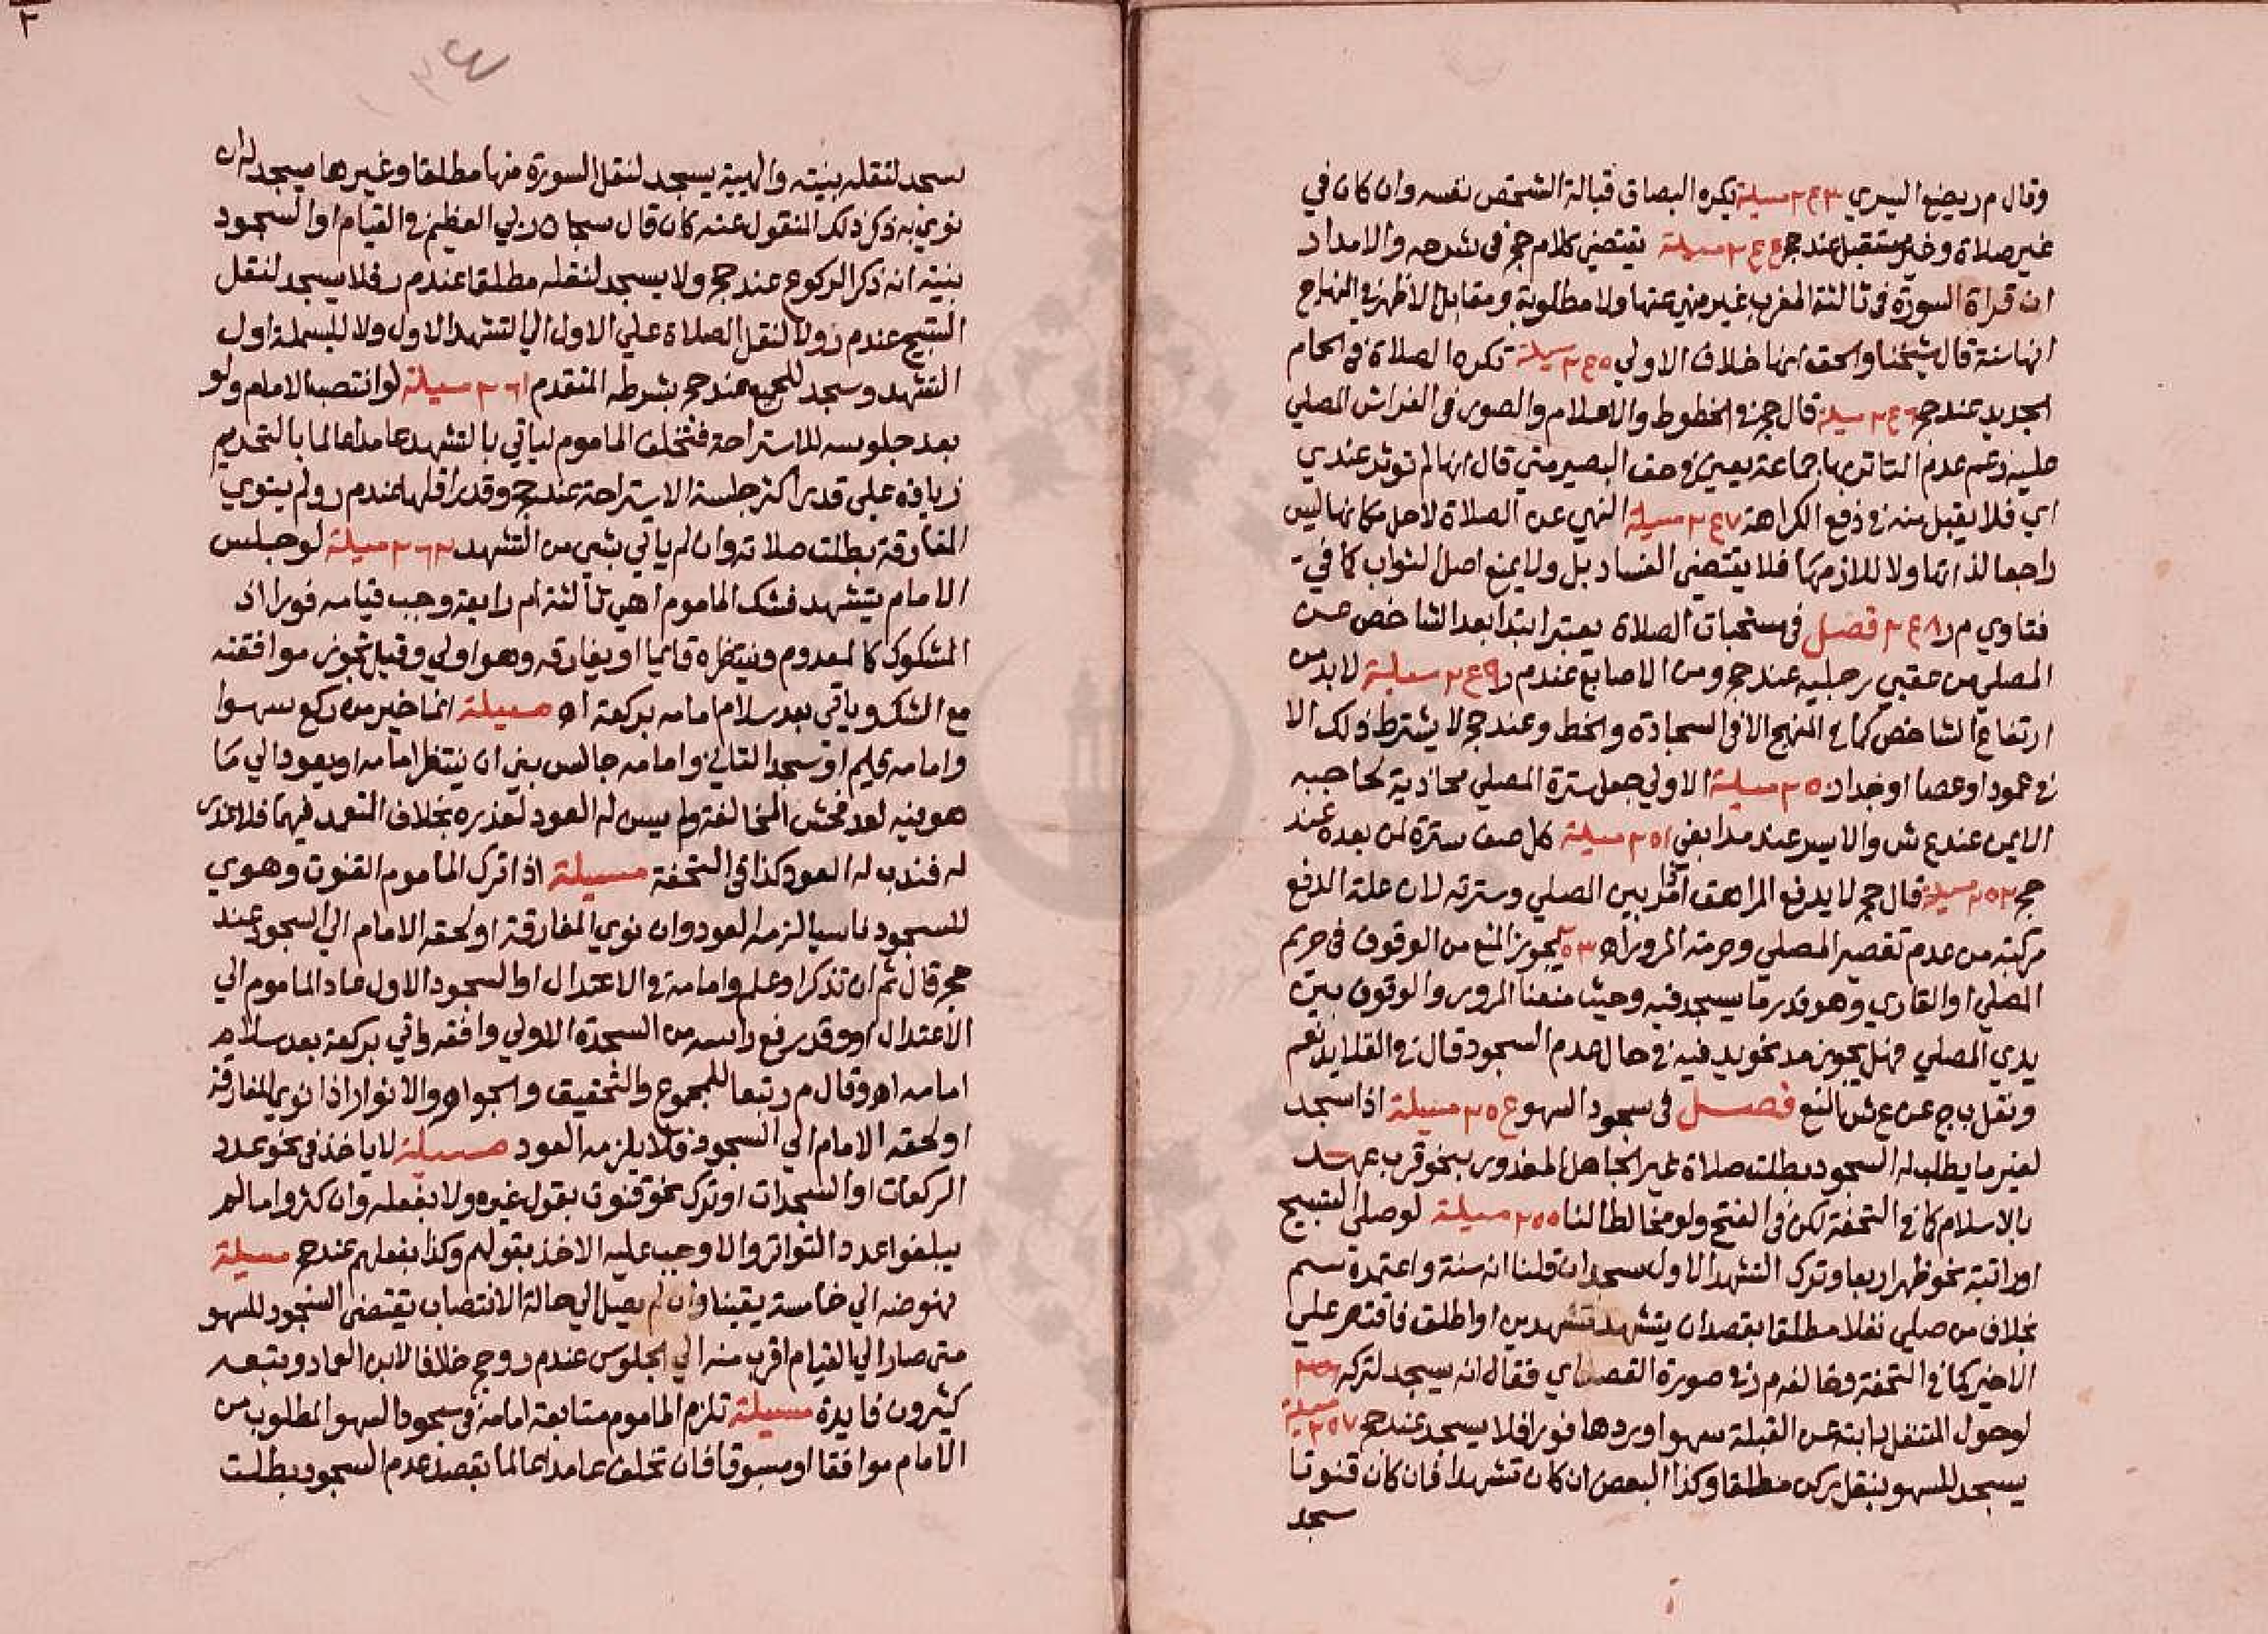 وقال م ر يضع اليسري ٢٤٣ مسيلة يكره البصاق قبالة الشخص نفسه وان كان في
غير صلاة وغير مستقبل عند حج ٢٤٤ مسيلة يقتضي كلام حج في شرحه والامداد
ان قراة السورة في ثالثة المغرب غير منهي عنها ولا مطلوبة ومقابل الاظهر في المنهاج
انها سنة قال شيخنا والحق انها خلاف الاولي ٢٤٥ مسيلة تكره الصلاة في الحمام
الجديد عند حج ٢٤٦ مسيلة قال حج في الخطوط والاعلام والصور في الفراش المصلي
عليه زعم عدم التاثر بها جماعة يعين وصف البصير متي قال انها لم توثر عندي
اي فلا يقبل منه في دفع الكراهة ٢٤٧ مسيلة النهي عن الصلاة لاجل مكانها ليس
راجعا لذاتها ولا للازمها فلا يقتضي الفساد بل ولا يمنع اصل الثواب كما في
فتاوي م ر ٢٤٨ فصل في مستحبات الصلاة يعتبر ابتدا بعد الشاخص عن
المصلي من عقبي رجليه عند حج ومن الاصابع عند م ر ٢٤٩ مسيلة لا بد من
ارتفاع الشاخص كما في المنهج الا في السجادة والخط وعند حج لا يشترط ذلك الا
في عمود او عصا او جدار ٢٥٠ مسيلة الاولي جعل سترة المصلي محاذية لحاجبه
الايمن عند ع ش والايسر عند مدابغي ٢٥١ مسيلة كل صف سترة لمن بعده عند
حج ٢٥٢ مسيلة قال حج لا يدفع المراهق المار بين المصلي وسترته لان علة الدفع
مركبة من عدم تقصير المصلي وحرمة المرور اه ٢٥٣ يجوز المنع من الوقوف في حريم
المصلي او القاري وهو قدر ما يسجد فيه وحيث منعنا المرور والوقوف بين
يدي المصلي فهل يجوز مد نحو يد فيه في حال عدم السجود قال في القلايد نعم
ونقل ب ج عن ع ش المنع فصل في سجود السهو ٢٥٤ مسيلة اذا سجد
لغير ما يطلب له السجود بطلت صلاة غير الجاهل المعذور بنحو قرب عهد
بالاسلام كما في التحفة لكن في الفتح ولو مخالطا لنا ٢٥٥ مسيلة لو صلي التسبيح
او راتبة نحو ظهر اربعا وترك التشهد الاول سجد ان قلنا انه سنة واعتمده سم
بخلاف من صلي نفلا مطلقا بقصد ان يتشهد تشهدين او اطلق فاقتصر علي
الاخير كما في التحفة وخالفه م ر في صورة القصد اي فقال انه يسجد لتركه ٢٥٦
مسيلة لو حول المتنفل دابته عن القبلة سهوا وردها فورا فلا يسجد عند حج ٢٥٧
يسجد للسهو بنقل ركن مطلقا وكذا البعض ان كان تشهدا فان كان قنوتا
سجد
سجد لنقله بنيته والهيية يسجد لنقل السورة منها مطلقا وغيرها يسجد له ان
نوي به ذكر ذلك المنقول عنه كان قال سبحان ربي العظيم في القيام او السجود
بنية انه ذكر الركوع عند حج ولا يسجد لنقله مطلقا عند م ر فلا يسجد لنقل
التسبيح عند م ر ولا لنقل الصلاة علي الاول الي التشهد الاول ولا للبسملة اول
التشهد وسجد للجميع عند حج بشرطه المتقدم ٢٦١ مسيلة لو انتصب الامام ولو
بعد جلوسه للاستراحة فتخلف الماموم لياتي بالتشهد عامدا عالما بالتحريم
زيادة علي قدر اكثر جلسة الاستراحة عند حج وقدر اقلها عند م ر ولم ينوي
المفارقة بطلت صلاته وان لم ياتي بشي من التشهد ٢٦٢ مسيلة لو جلس
الامام يتشهد فشك الماموم اهي ثالثة ام رابعة وجب قيامه فورا اذ
المشكوك كالمعدوم وينتظره قايما او يفارقه وهو اولي وقيل تجوز موافقته
مع الشك وياتي بعد سلام امامه بركعة اه مسيلة انما خير من ركع سهوا
وامامه قايم او سجد الثاني وامامه جالس بين ان ينتظر امامه او يعود الي ما
هو فيه لعدم فحش المخالفة ولم يسن له العود لعذره بخلاف المتعمد فيهما فلا عذر
له فندب له العود كذا في التحفة مسيلة اذا ترك الماموم القنوت وهوي
للسجود ناسيا لزمه العود وان نوي المفارقة او لحقه الامام الي السجود عند
حج قال ثم ان تذكر او علم وامامه في الاعتدال او السجود الاول عاد الماموم الي
الاعتدال او وقد رفع راسه من السجدة الاولي وافقه واتي بركعة بعد سلام
امامه اه وقال م ر تبعا للمجموع والتحقيق والجواهر والانوار اذا نوي المفارقة
او لحقه الامام الي السجود فلا يلزمه العود مسيلة لا ياخذ في نحو عدد
الركعات او السجدات او ترك نحو قنوت بقول غيره ولا بفعله وان كثروا ما لم
يبلغوا عدد التواتر والا وجب عليه الاخذ بقولهم وكذا بفعلهم عند حج مسيلة
نهوضه الي خامسة يقينا وان لم يصل الي حالة الانتصاب يقتضي السجود للسهو
متي صار الي القيام اقرب منه الي الجلوس عند م ر وحج خلافا لابن العماد وتبعه
كثيرون فايدة مسيلة تلزم الماموم متابعة امامه في سجود السهو المطلوب من
الامام موافقا او مسبوقا فان تخلف عامدا عالما بقصد عدم السجود بطلت